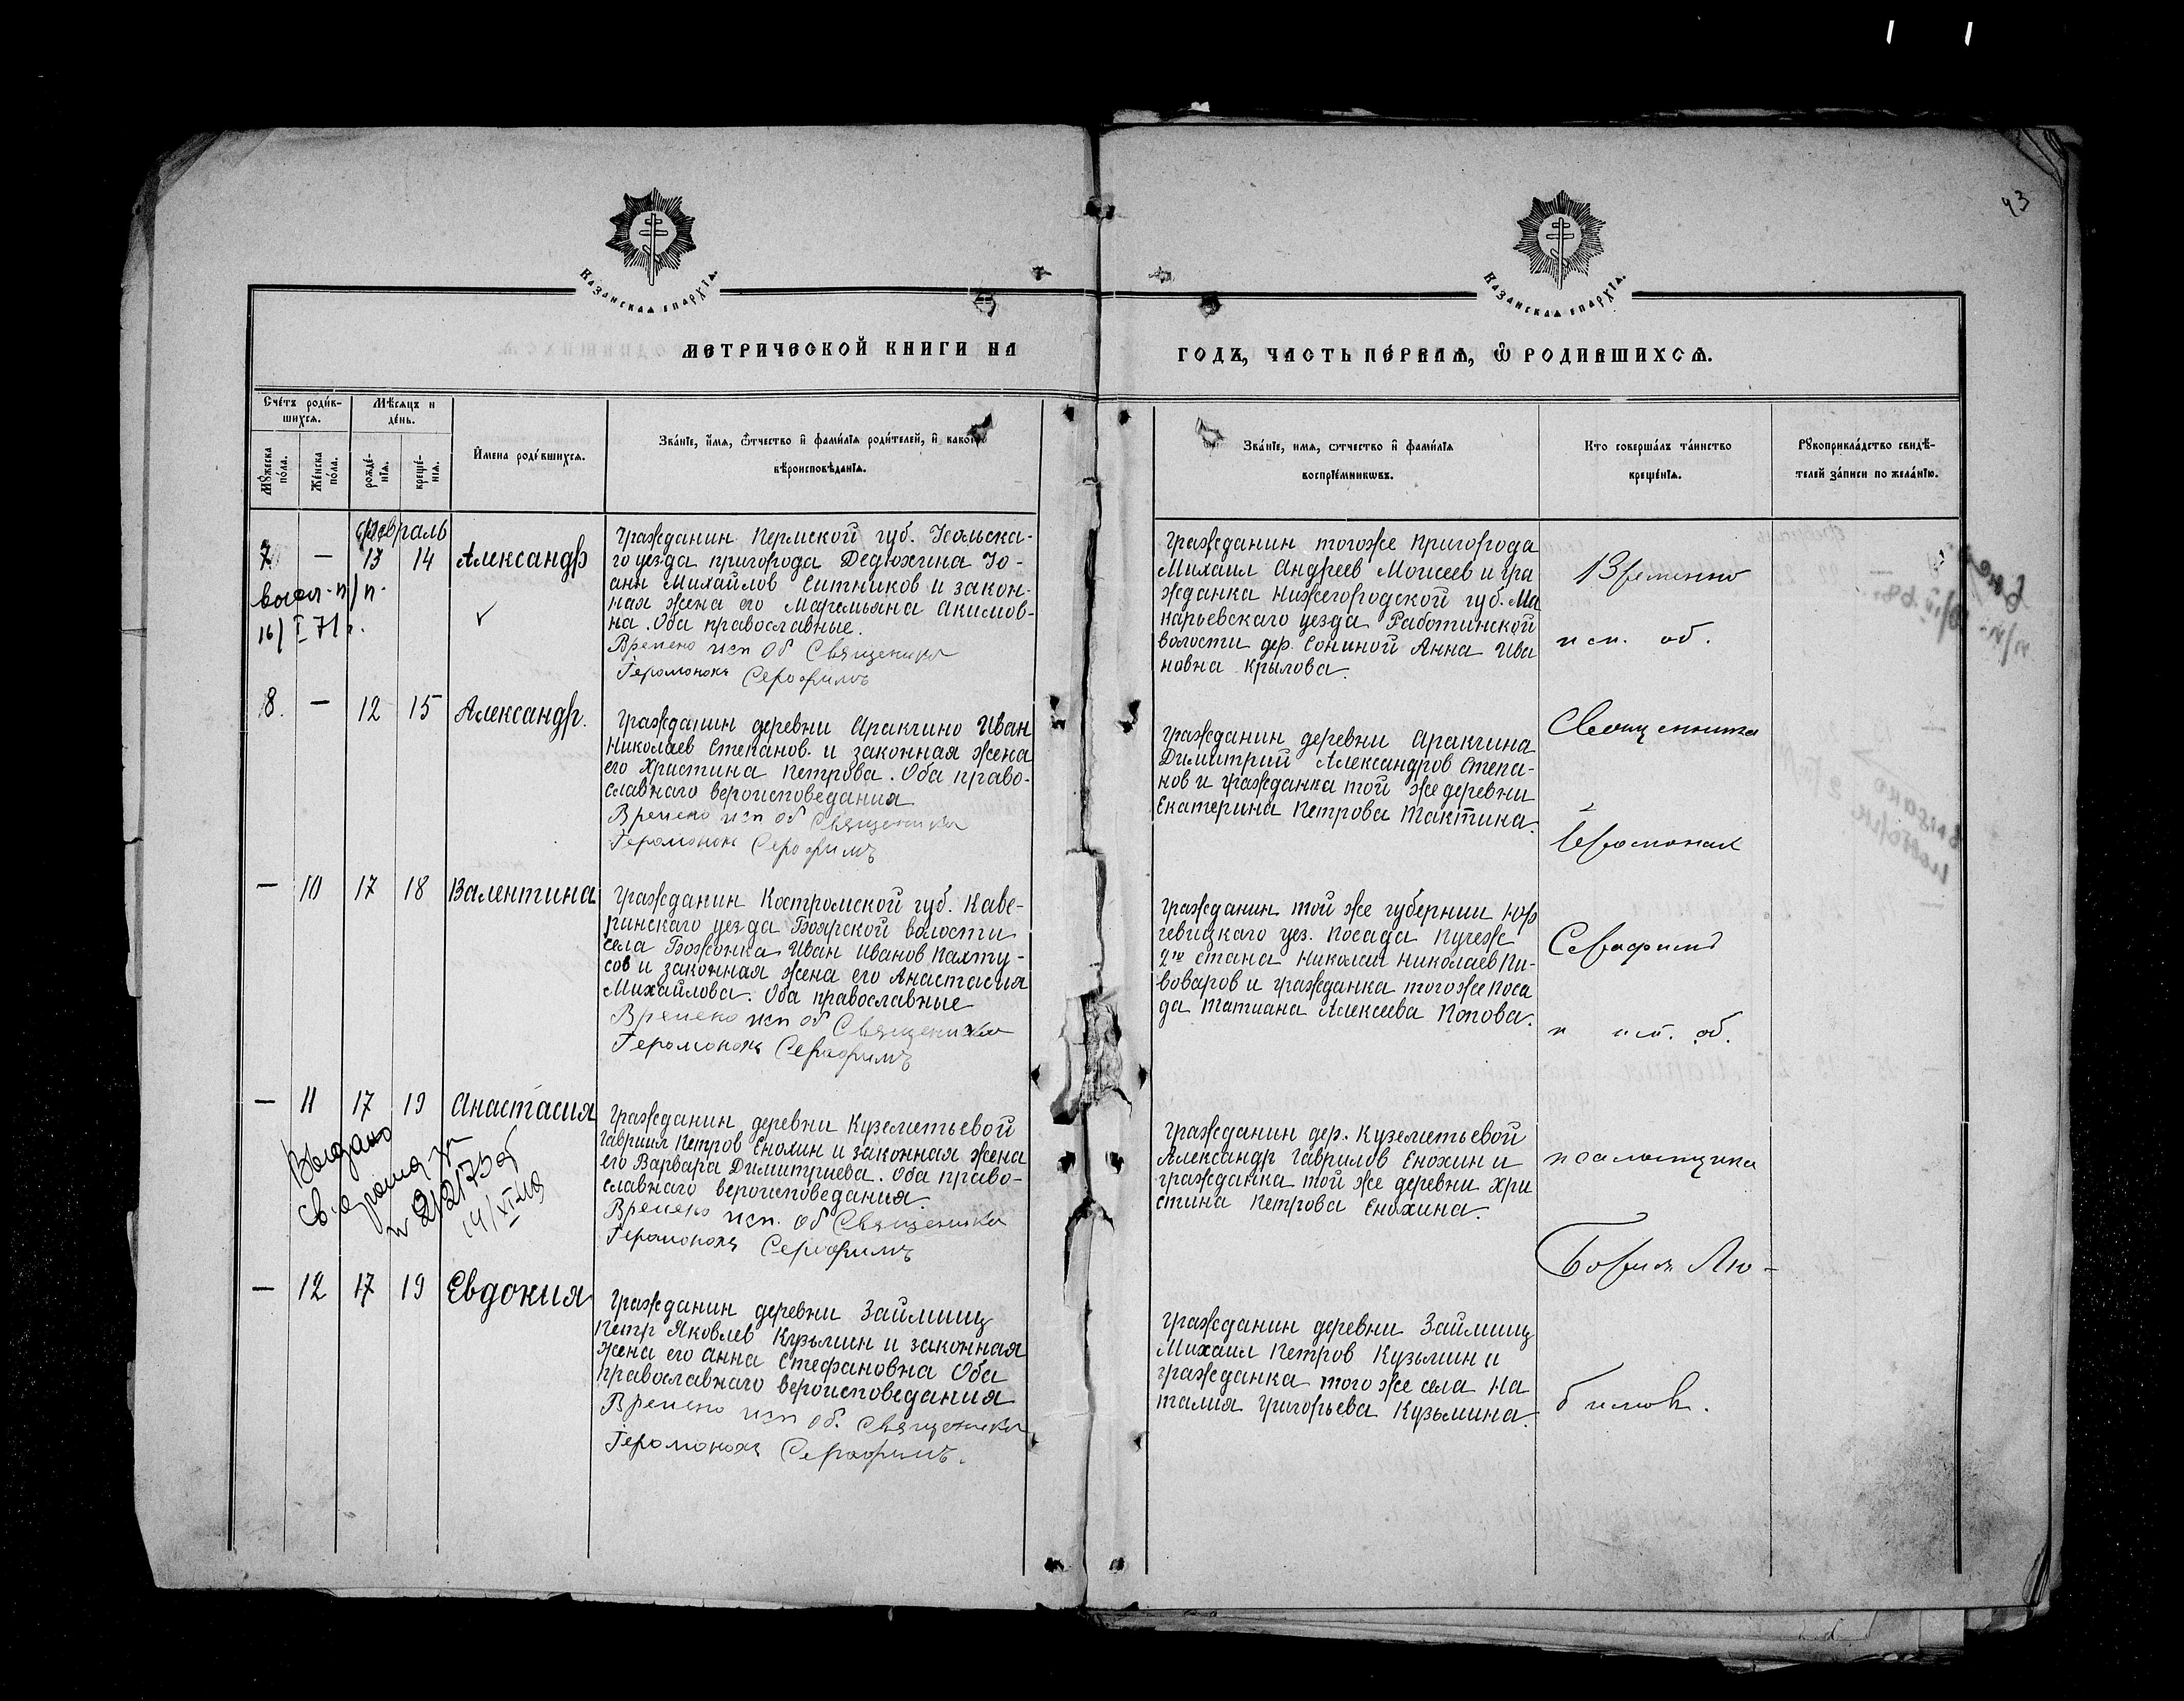 43
Казанская епархїѧ.
Казанская епархїѧ.
МЕТРИЧЕСКОЙ КНИГИ НА
ГОДЪ, ЧАСТЬ ПЕ́РВАѦ, Ѿ РОДИВШИХСѦ.
Сче́тъ роди́в-
шихсѧ.
Мѣ́сѧцъ и
де́нь.
Мꙋ́жеска
по́ла.
Же́нска
по́ла.
рожде́-
нїѧ.
креще́-
нїѧ.
И҆мена роди́вшихсѧ.
Зва́нїе, и҆́мѧ, ѻ҆́тчество и҆ фами́лїѧ роди́телей, и҆ како́гѡ
вѣроисповѣ́данїѧ.
Зва́нїе, имѧ, ѻтчество и҆ фами́лїѧ
воспрїе́мникѡвъ.
Кто соверша́лъ та́инство
креще́нїѧ.
Рꙋкоприкла́дство свидѣ́-
телей за́писи по жела́нїю.
Февраль
7
—
13
14
Александр
Гражданин Пермской губ. Сольска-
го уезда пригорода Дедюхина Ио-
анн Михайлов Ситников и закон-
ная жена его Маремьяна Акимов-
на. Оба православные.
Времено исп об Священика
Іеромонохъ Серофимъ
16/I 71г.
Гражданин тогоже пригорода
Михаил Андреев Моисеев и гра
жданка Нижегородской губ. Ма
карьевскаго уезда Работинской
волости дер. Сониной Анна Ива
новна Крылова.
Временно
исп. об.
8.
—
12
15
Александр.
Гражданин деревни Аракчино Иван
Николаев Степанов. и законная жена
его Христина Петрова. Оба право-
славнаго вероисповедания
Времено исп об Священика
Іеромонохъ Серофимъ
Гражданин деревни Аракчина
Димитрий Александров Степа-
нов и гражданка той же деревни
Екатерина Петрова Тактина.
Священника
Іеромонах
—
10
17
18
Валентина
Гражданин Костромской губ. Каве-
ринскаго уезда Боярской волости
села Божонка Иван Иванов Пахту-
сов и законная жена его Анастасия
Михайлова. Оба православные
Времено исп об Священика
Іеромонохъ Серофимъ
Гражданин той же губернии Юрь
гевицкаго уез. посада Пучеж
2го стана Николай Николаев Пи-
воваров и гражданка тогоже поса
да Татиана Алексеева Попова.
Серафим
и исп. об.
—
11
17
19
Анастасия
Выдано
14/XI
Гражданин деревни Куземетьевой
Гавриил Петров Енохин и законная жена
его Варвара Димитриева. Оба право-
славнаго вероисповедания.
Времено исп. об Священика
Іеромонохъ Серофимъ
Гражданин дер. Куземетьевой
Александр Гаврилов Енохин и
гражданка той же деревни Хри
стина Петрова Енохина.
псаломщика
Борис Лю-
—
12
17
19
Евдокия
Гражданин деревни Займищ
Петр Яковлев Кузьмин и законная
жена его Анна Стефановна Оба
православнаго вероисповедания
Времено исп об. Священика
Іеромонохъ Серофимъ.
Гражданин деревни Займищ
Михаил Петров Кузьмин и
гражданка того же села На
талия Григорьева Кузьмина.
бимов.